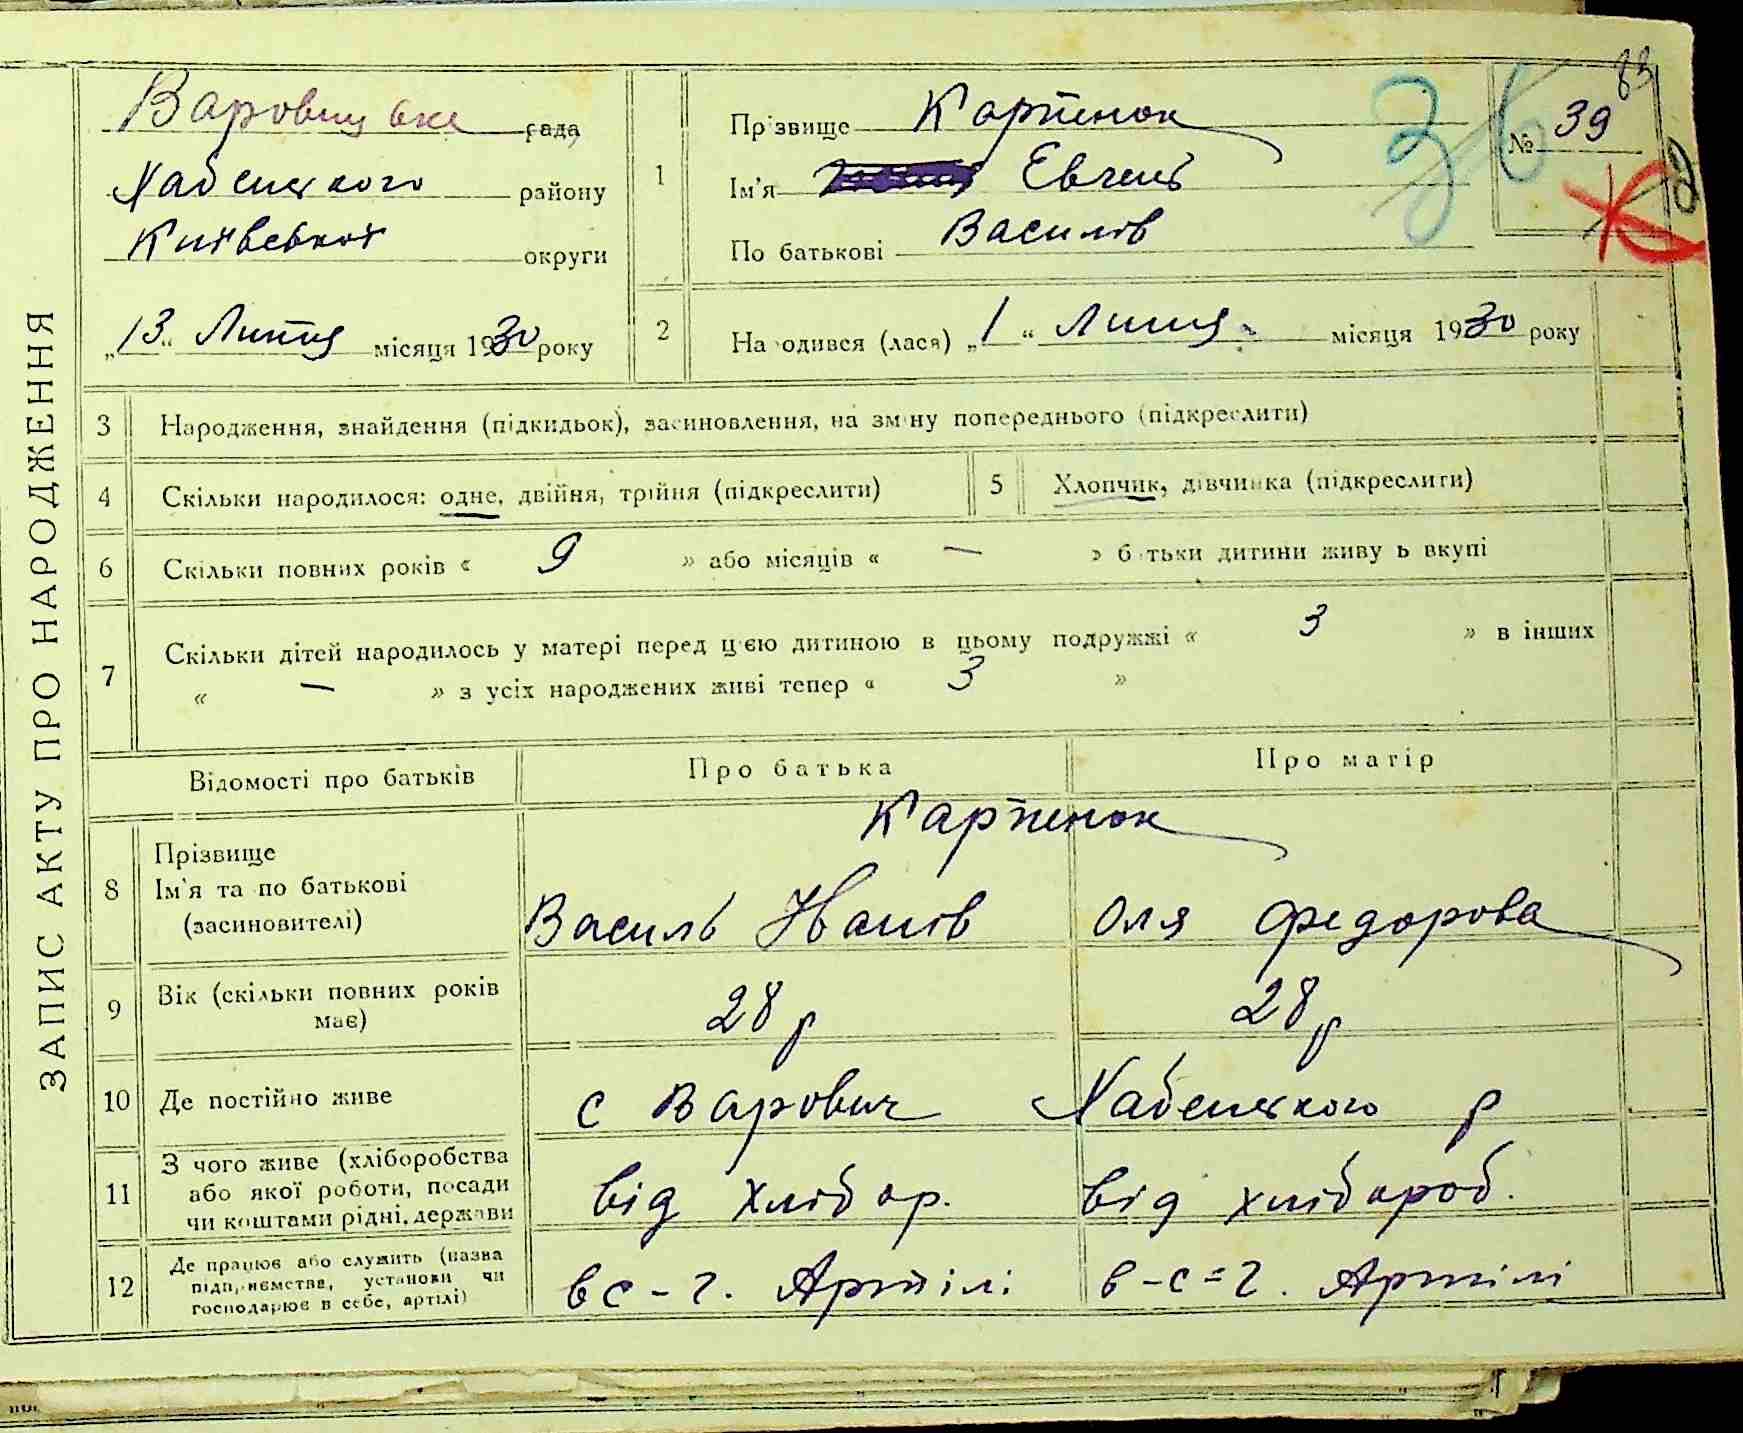 ЗАПИС АКТУ ПРО НАРОДЖЕННЯ
83
Варовицька рада,
Хабенського району
Київської округи
„13“ Липня місяця 1930 року
1
Прізвище Карпенок
Ім'я Евгені
По батькові Василів
№ 39
2
Народився (лася) „1“ Липня місяця 1930 року
3 Народження, знайдення (підкидьок), засиновлення, на зміну попереднього (підкреслити)
4 Скільки народилося: одне, двійня, трійня (підкреслити)
5 Хлопчик, дівчинка (підкреслити)
6 Скільки повних років « 9 » або місяців « — » батьки дитини живуть вкупі
7 Скільки дітей народилось у матері перед цією дитиною в цьому подружжі « 3 » в інших
« — » з усіх народжених живі тепер « 3 »
Відомості про батьків Про батька Про матір
Карпенок
8 Прізвище
Ім'я та по батькові
(засиновителі)
Василь Иванів Оля Федорова
9 Вік (скільки повних років
має)
28 р 28 р
10 Де постійно живе с Варович Хабенського р
11 З чого живе (хліборобства
або якої роботи, посади
чи коштами рідні, держави
від хлібор. від хлібороб.
12 Де працює або служить (назва
підприємства, установи чи
господарює в себе, артілі)
в с-г. Артілі. в-с=г. Артілі